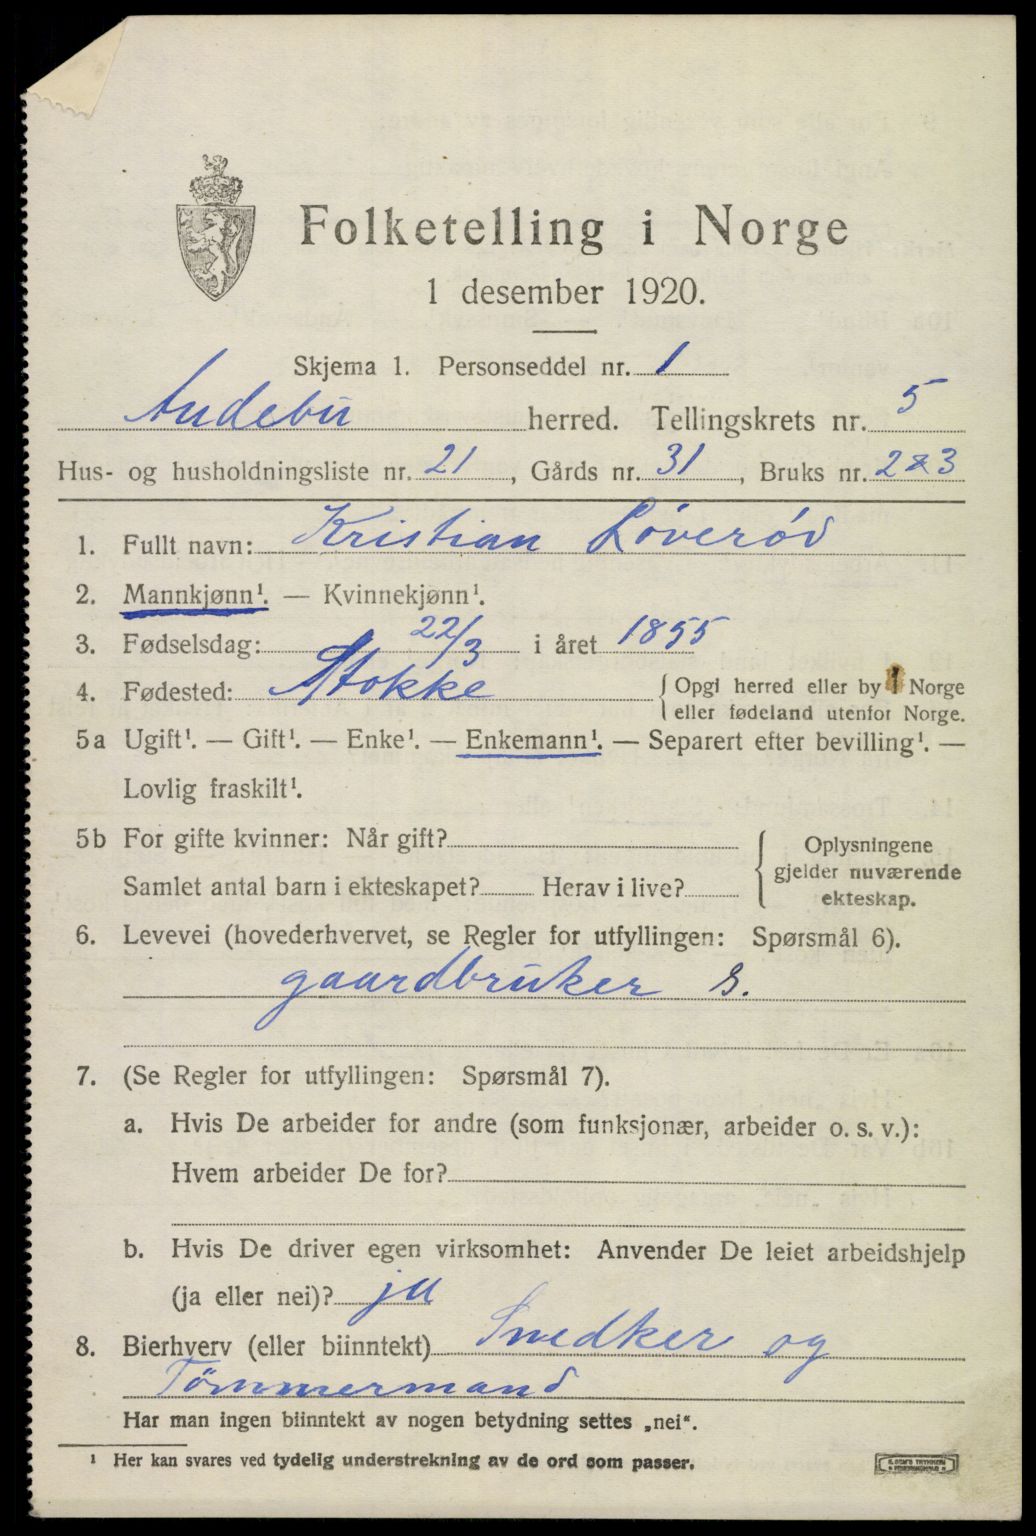 Folketelling i Norge
1 desember 1920.
Skjema 1. Personseddel nr. 1
Andebu herred. Tellingskrets nr. 5
Hus- og husholdningsliste nr. 21, Gårds nr. 31, Bruks nr. 2 & 3
1. Fullt navn: Kristian Løverød
2. Mannkjønn¹. — Kvinnekjønn¹.
3. Fødselsdag: 22/3 i året 1855
4. Fødested: Stokke { Opgi herred eller by i Norge
eller fødeland utenfor Norge.
5a Ugift¹. — Gift¹. — Enke¹. — Enkemann¹. — Separert efter bevilling¹. —
Lovlig fraskilt¹.
5b For gifte kvinner: Når gift?
Samlet antal barn i ekteskapet? Herav i live?
{ Oplysningene
gjelder nuværende
ekteskap.
6. Levevei (hovederhvervet, se Regler for utfyllingen: Spørsmål 6).
gaardbruker S.
7. (Se Regler for utfyllingen: Spørsmål 7).
a. Hvis De arbeider for andre (som funksjonær, arbeider o. s. v.):
Hvem arbeider De for?
b. Hvis De driver egen virksomhet: Anvender De leiet arbeidshjelp
(ja eller nei)? ja
8. Bierhverv (eller biinntekt) Snedker og
Tömmermand
Har man ingen biinntekt av nogen betydning settes „nei“.
¹ Her kan svares ved tydelig understrekning av de ord som passer.